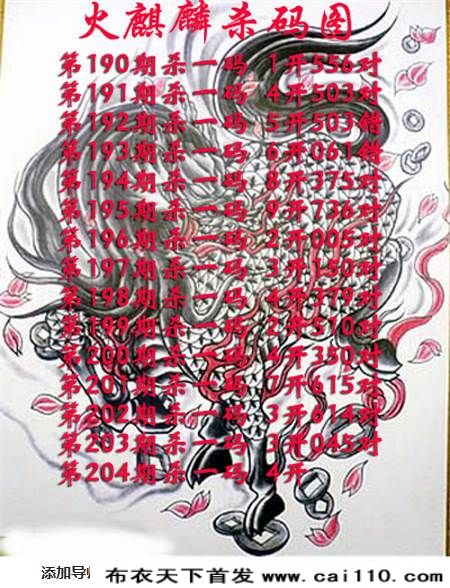 火麒麟杀码图
第190期杀一码 1开556对
第191期杀一码 4开503对
第192期杀一码 5开503错
第193期杀一码 6开061错
第194期杀一码 8开375对
第195期杀一码 9开736对
第196期杀一码 2开005对
第197期杀一码 3开150对
第198期杀一码 4开379对
第199期杀一码 2开510对
第200期杀一码 4开350对
第201期杀一码 7开615对
第202期杀一码 3开614对
第203期杀一码 3开045对
第204期杀一码 4开
添加导
布衣天下首发 www.cai110.com